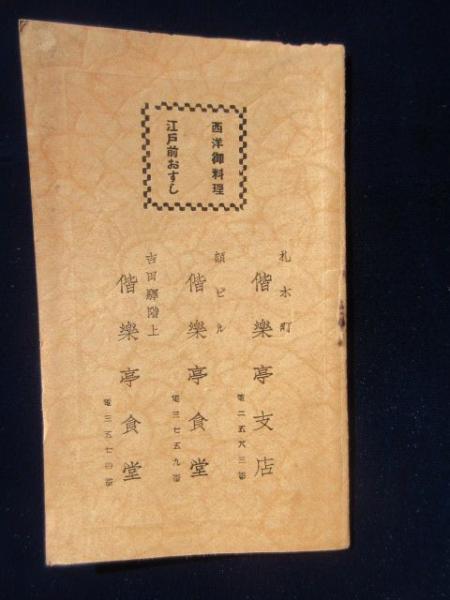 西洋御料理
江戸前おすし
札木町
偕樂亭支店
電二五六三番
額ビル
偕樂亭食堂
電三七五九番
吉田驛階上
偕樂亭食堂